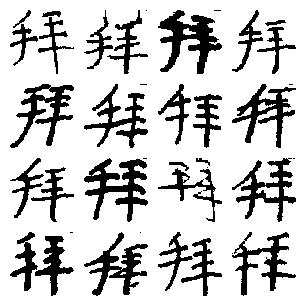 拜拜拜拜
拜拜拜拜
拜拜拜拜
拜拜拜拜